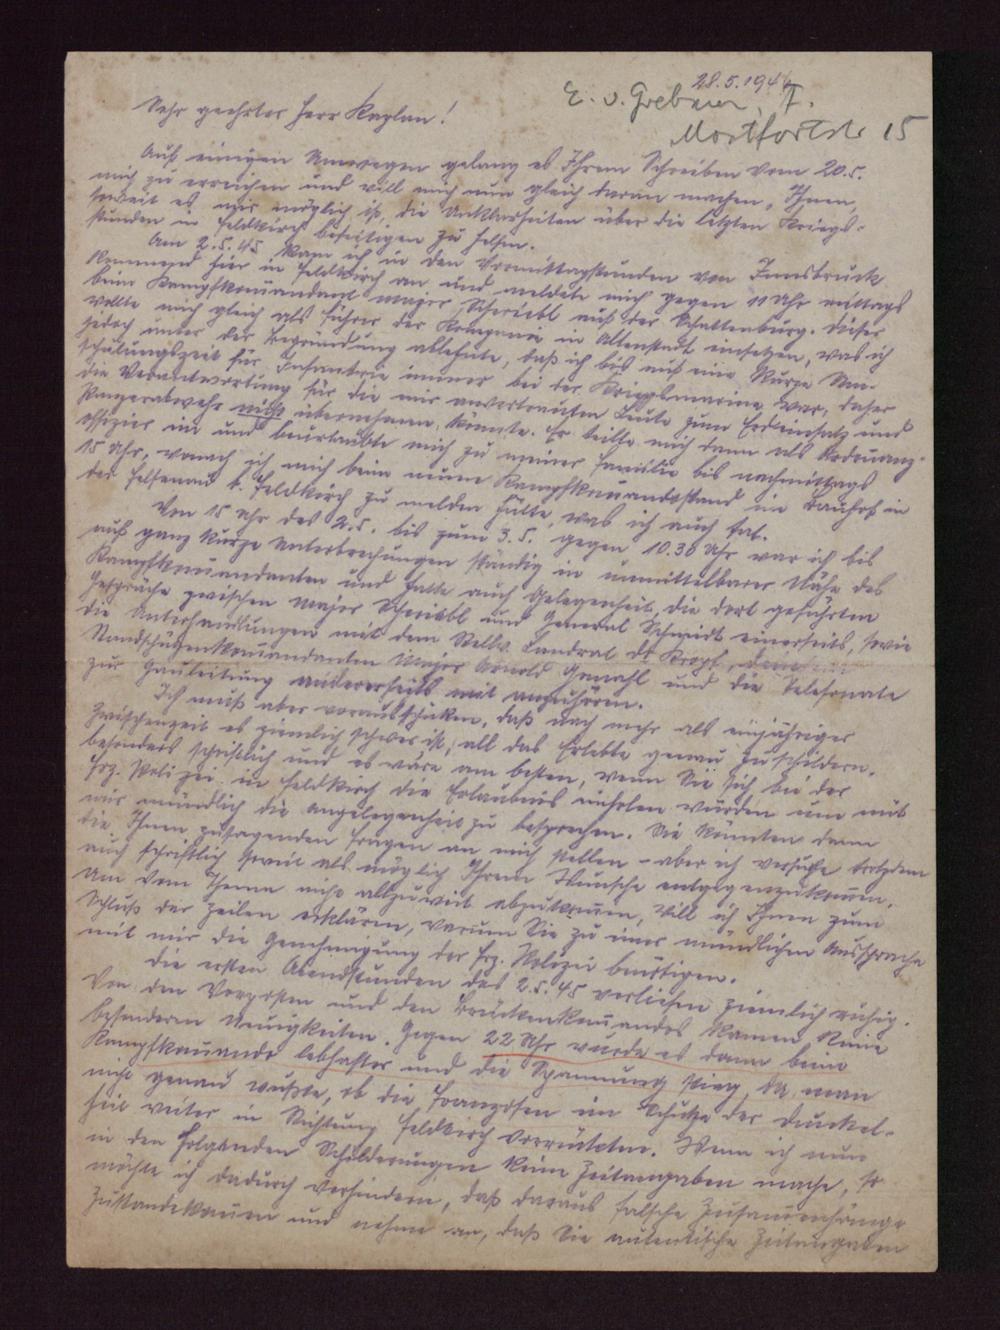 28.5.1946
E. v. Grebmer, F.
Montfortstr. 15
Sehr geehrter Herr Kaplan!
Auf einigen Umwegen gelang es Ihrem Schreiben vom 20.5.
mich zu erreichen und will mich nun gleich daran machen, Ihnen,
soweit es mir möglich ist, die Unklarheiten über die letzten Kriegs-
stunden in Feldkirch beseitigen zu helfen.
Am 2.5.45 kam ich in den Vormittagstunden von Innsbruck
kommend hier in Feldkirch an und meldete mich gegen 11 Uhr mittags
beim Kampfkomandant Major Schriebl auf der Schattenburg. Dieser
wollte mich gleich als Führer der Kompanie in Altenstadt einsetzen, was ich
jedoch unter der Begründung ablehnte, daß ich bis auf eine kurze Um-
schulungszeit für Infanterie immer bei der Kriegsmarine war, daher
die Verantwortung für die mir anvertrauten Leute zum Erdeinsatz und
Panzerabwehr nicht übernehmen könnte. Er teilte mich dann als Ordonanz-
offizier ein und beurlaubte mich zu meiner Familie bis nachmittags
15 Uhr, wonach ich mich beim neuen Kampfkomandostand im Bauhof in
der Felsenau b. Feldkirch zu melden hätte, was ich auch tat.
Von 15 Uhr des 2.5. bis zum 3.5. gegen 10.30 Uhr war ich bis
auf ganz kurze Unterbrechungen ständig in unmittelbarer Nähe des
Kampfkomandanten und hatte auch Gelegenheit, die dort geführten
Gespräche zwischen Major Schriebl und General Schmidt einerseits, sowie
die Unterhandlungen mit dem Stellv. Landrat Dr Kropf,
Standschützenkomandanten Major Arnold Ganahl und die Telefonate
zur Gauleitung andererseits mit anzuhören.
Ich muß aber vorausschicken, daß nach mehr als einjähriger
Zwischenzeit es ziemlich schwer ist, all das Erlebte genau zu schildern,
besonders schriftlich und es wäre am besten, wenn Sie sich bei der
frz. Polizei in Feldkirch die Erlaubnis einholen würden um mit
mir mündlich die Angelegenheit zu besprechen. Sie könnten dann
die Ihnen zusagenden Fragen an mich stellen - aber ich versuche trotzdem
auch schriftlich soweit als möglich Ihrem Wunsche entgegenzukommen.
Um vom Thema nicht allzuweit abzukommen, will ich Ihnen zum
Schluß der Zeilen erklären, warum Sie zu einer mündlichen Aussprache
mit mir die Genehmigung der frz. Polizei benötigen.
Die ersten Abendstunden des 2.5.45 verliefen ziemlich ruhig.
Von den Vorposten und den Brückenkomandos kamen keine
besonderen Neuigkeiten. Gegen 22 Uhr wurde es dann beim
Kampfkomando lebhafter und die Spannung stieg, da man
nicht genau wußte, ob die Franzosen im Schutze der Dunkel-
heit weiter in Richtung Feldkirch vorrückten. Wenn ich nun
in den folgenden Schilderungen keine Zeitangaben mache, so
möchte ich dadurch verhindern, daß daraus falsche Zusammenhänge
zustandekommen und nehme an, daß Sie autentische Zeitangaben